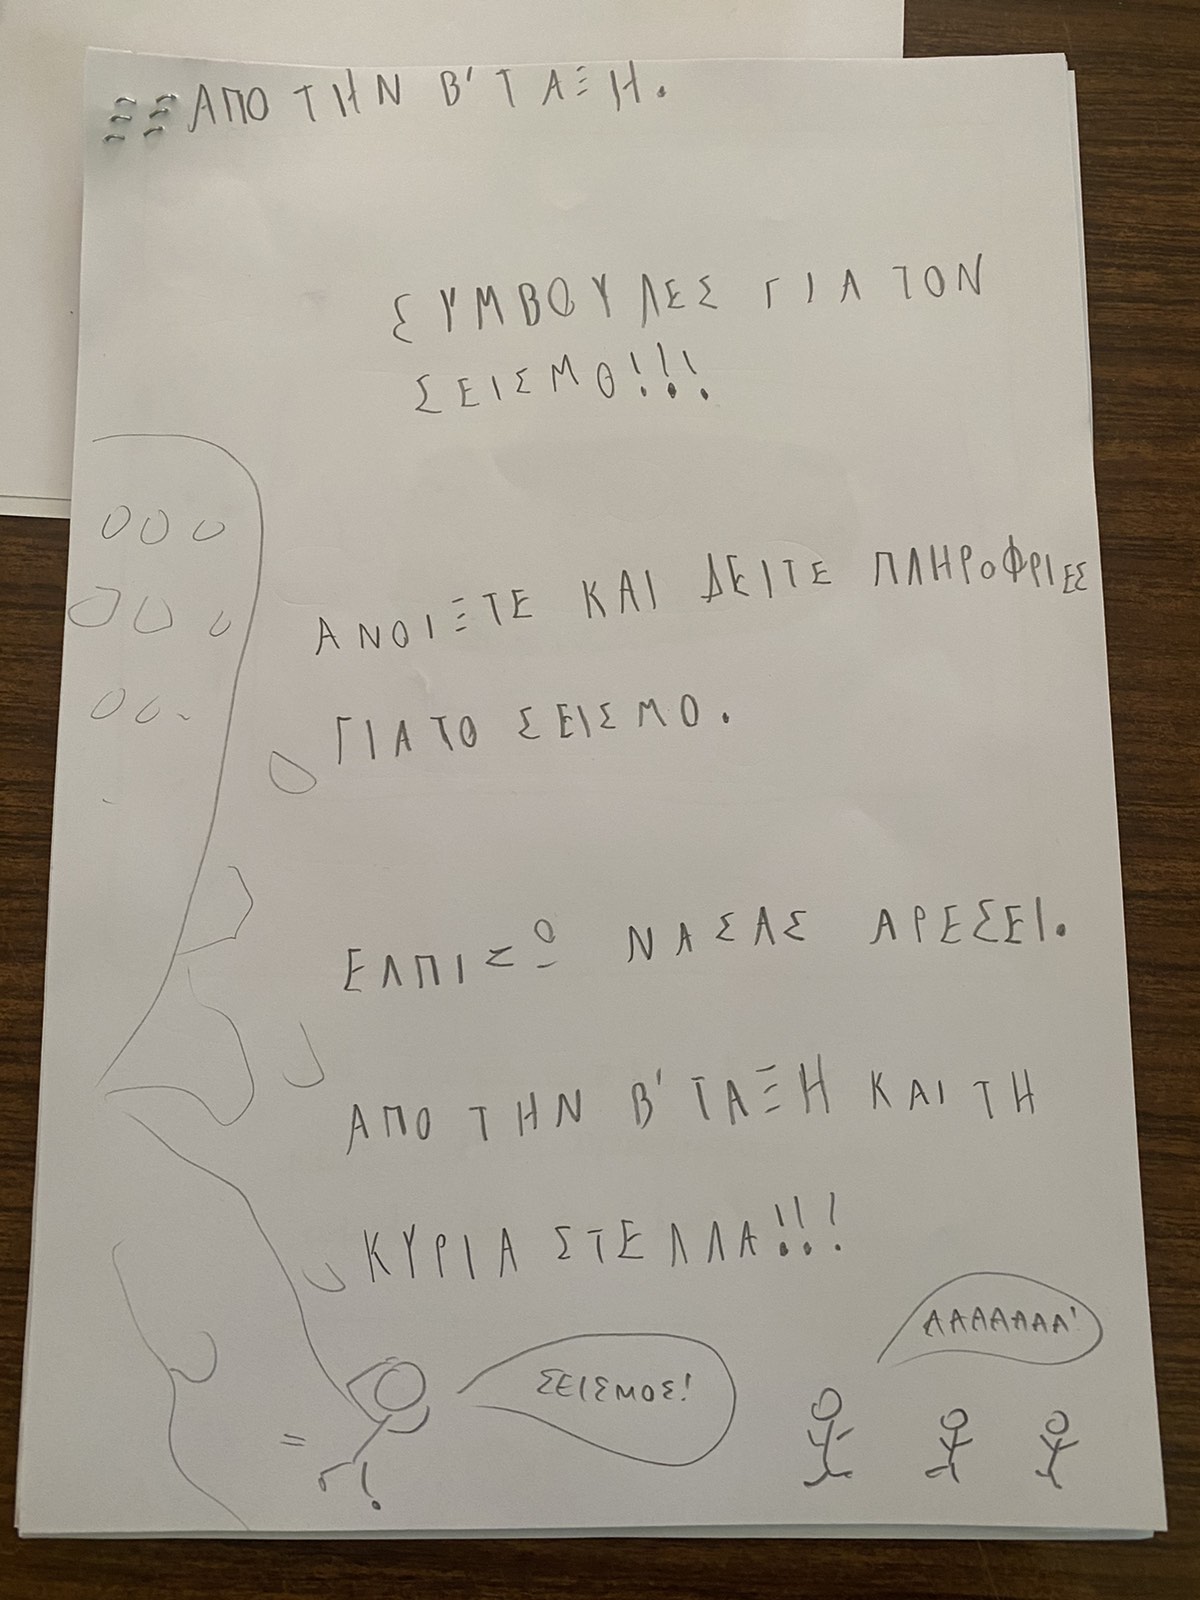 ΑΠΟ ΤΗΝ Β' ΤΑΞΗ.
ΣΥΜΒΟΥΛΕΣ ΓΙΑ ΤΟΝ
ΣΕΙΣΜΟ!!!
ΑΝΟΙΞΤΕ ΚΑΙ ΔΕΙΤΕ ΠΛΗΡΟΦΡΙΕΣ
ΓΙΑ ΤΟ ΣΕΙΣΜΟ.
ΕΛΠΙΖΩ ΝΑ ΣΑΣ ΑΡΕΣΕΙ.
ΑΠΟ ΤΗΝ Β' ΤΑΞΗ ΚΑΙ ΤΗ
ΚΥΡΙΑ ΣΤΕΛΛΑ!!!
ΑΑΑΑΑΑΑ!
ΣΕΙΣΜΟΣ!